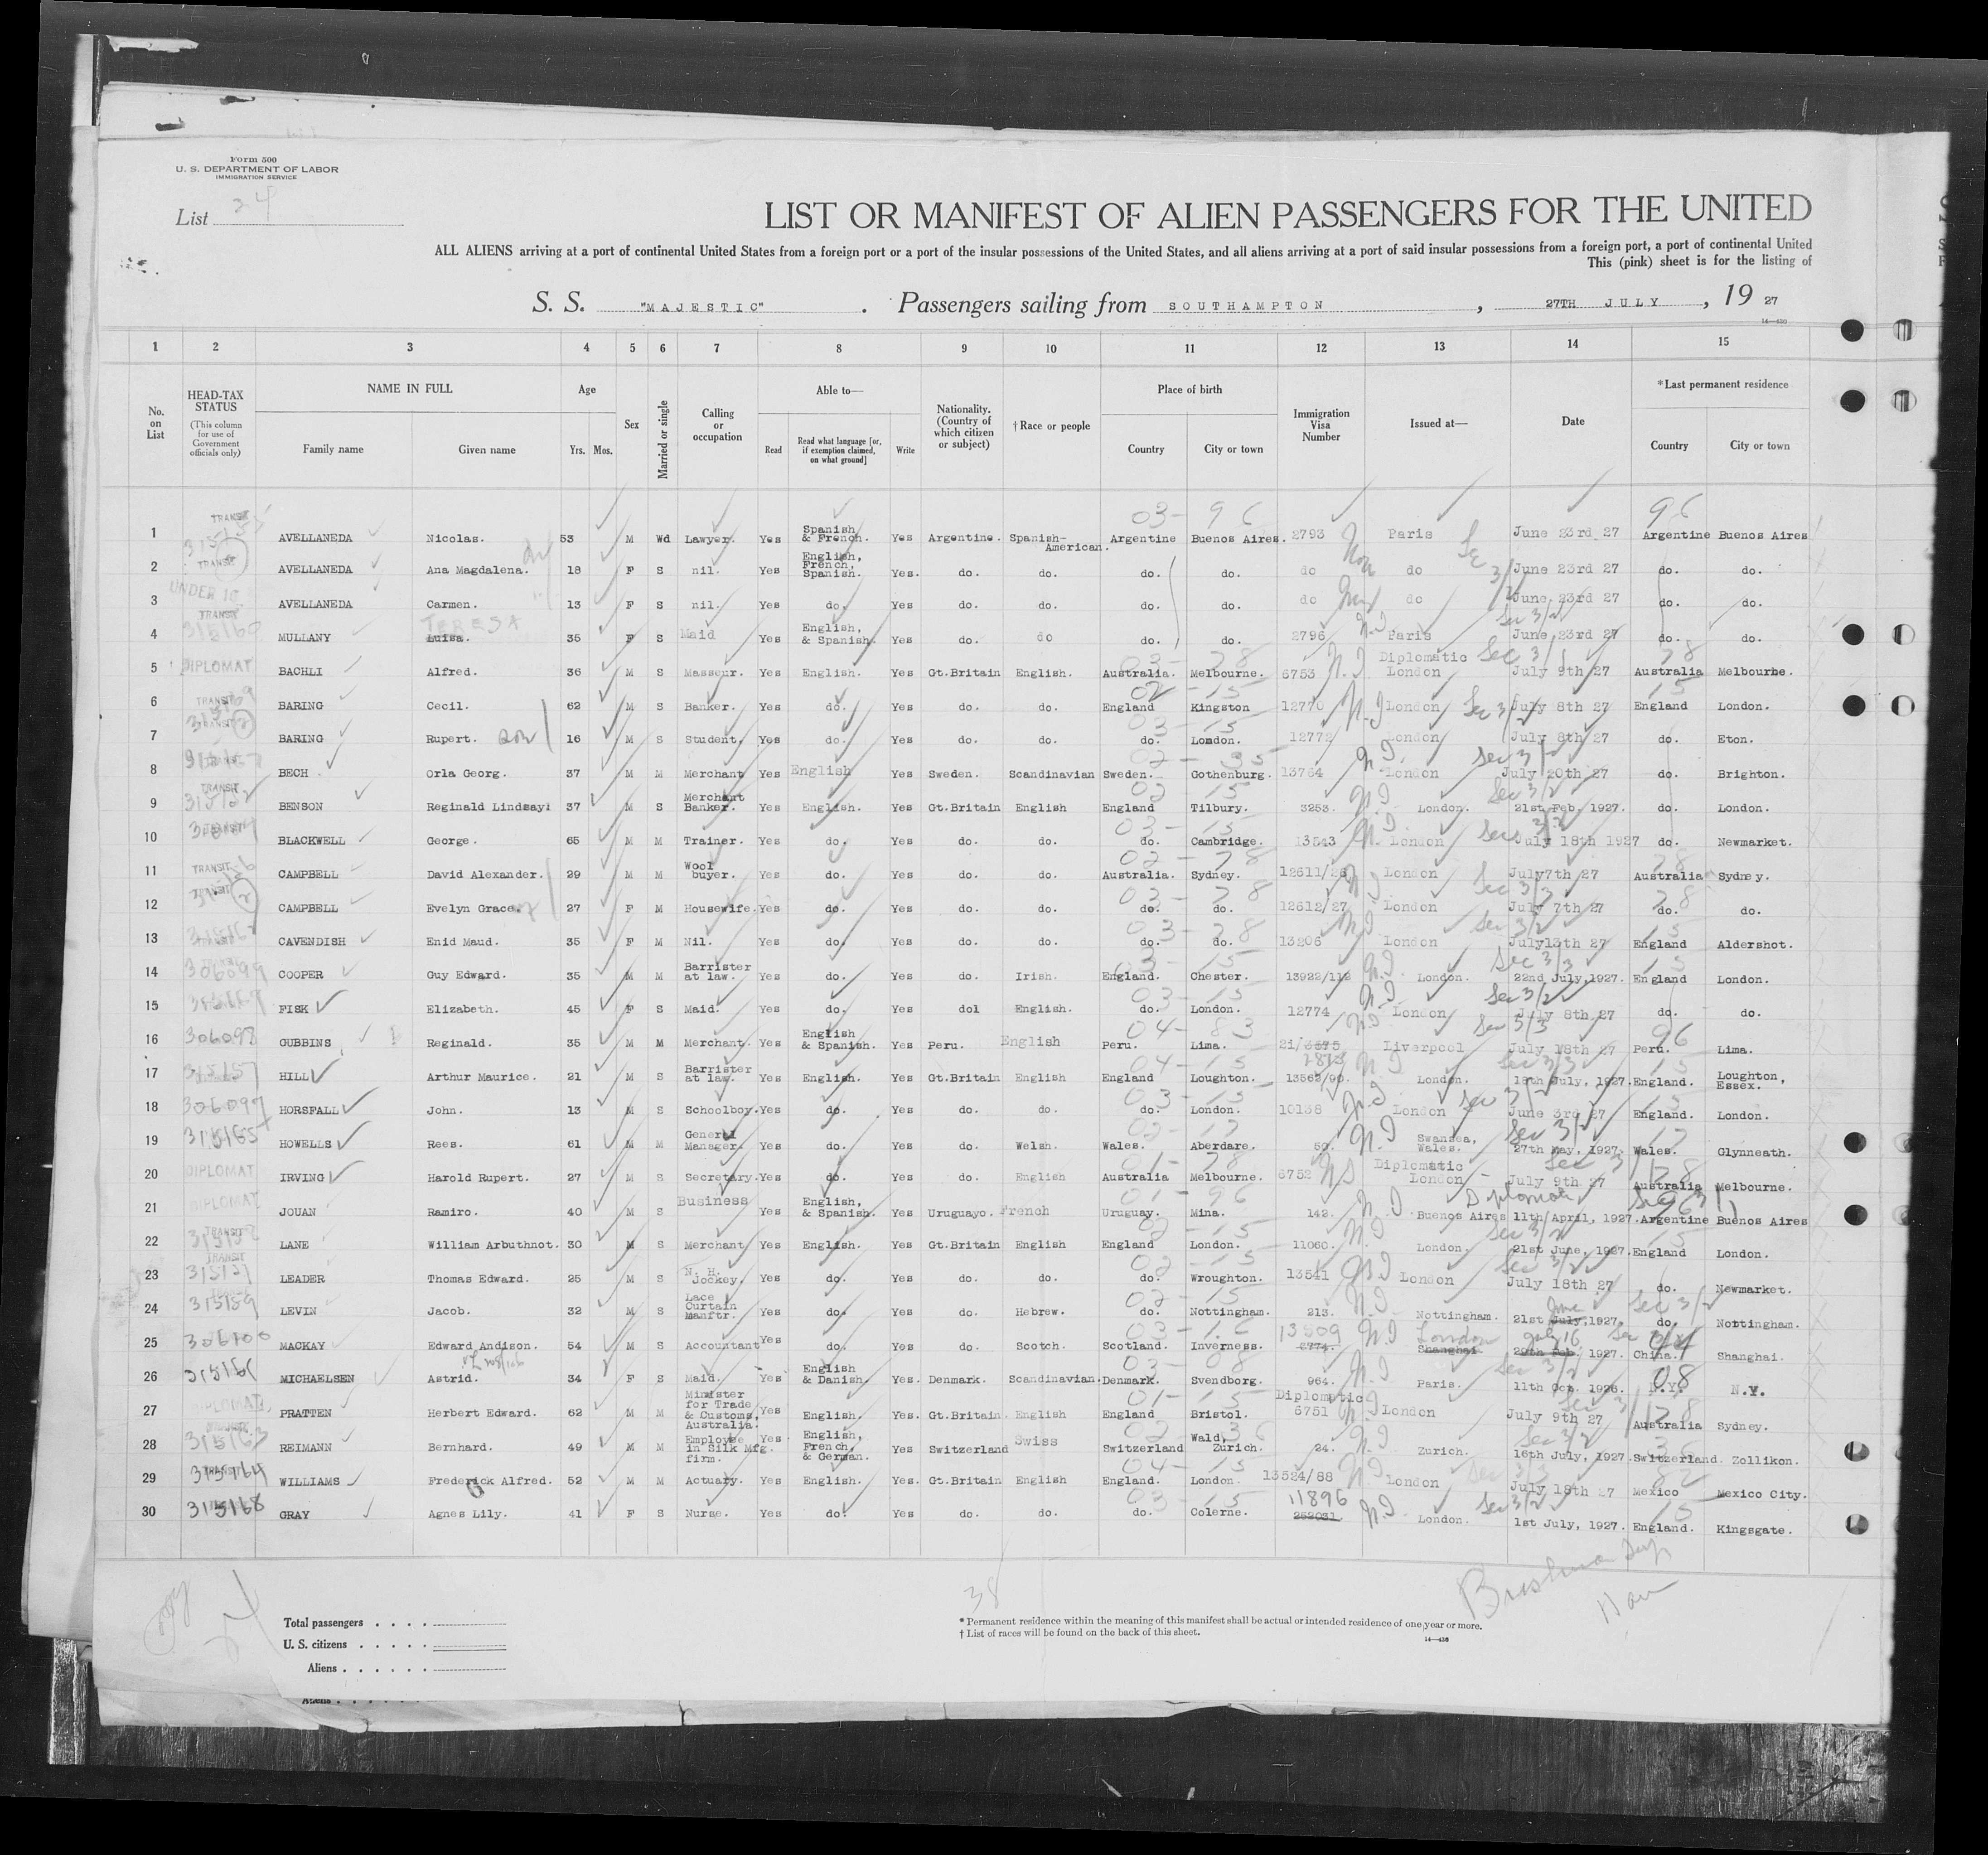 Form 500
U. S. DEPARTMENT OF LABOR
IMMIGRATION SERVICE
List 24
LIST OR MANIFEST OF ALIEN PASSENGERS FOR THE UNITED
ALL ALIENS arriving at a port of continental United States from a foreign port or a port of the insular possessions of the United States, and all aliens arriving at a port of said insular possessions from a foreign port, a port of continental United
This (pink) sheet is for the listing of
S. S. "MAJESTIC" . Passengers sailing from SOUTHAMPTON , 27TH JULY , 19 27
1 2 3 4 5 6 7 8 9 10 11 12 13 14 15
No. on List HEAD-TAX STATUS (This column for use of Government officials only) NAME IN FULL Family name Given name Age Yrs. Mos. Sex Married or single Calling or occupation Able to— Read Read what language [or, if exemption claimed, on what ground] Write Nationality. (Country of which citizen or subject) †Race or people Place of birth Country City or town Immigration Visa Number Issued at— Date *Last permanent residence Country City or town
1 TRANSIT AVELLANEDA Nicolas. 53 M Wd Lawyer. Yes Spanish & French. Yes Argentine. Spanish-American. Argentine Buenos Aires. 2793 Paris June 23rd 27 Argentine Buenos Aires
2 TRANSIT AVELLANEDA Ana Magdalena. 18 F S nil. Yes English, French, Spanish. Yes. do. do. do. do. do do June 23rd 27 do. do.
3 UNDER 16 AVELLANEDA Carmen. 13 F S nil. Yes do. Yes do. do. do. do. do do June 23rd 27 do. do.
4 TRANSIT 315160 MULLANY Luisa. TERESA 35 F S Maid Yes English, & Spanish. Yes do. do do. do. 2796 Paris June 23rd 27 do. do.
5 DIPLOMAT BACHLI Alfred. 36 M S Masseur. Yes English. Yes Gt.Britain English. Australia. Melbourne. 6753 Diplomatic London July 9th 27 Australia Melbourne.
6 TRANSIT BARING Cecil. 62 M S Banker. Yes do. Yes do. do. England Kingston 12770 London July 8th 27 England London.
7 TRANSIT BARING Rupert. 16 M S Student. Yes do. Yes do. do. do. London. 12772 London July 8th 27 do. Eton.
8 BECH Orla Georg. 37 M M Merchant Yes English Yes Sweden. Scandinavian Sweden. Gothenburg. 13764 London July 20th 27 do. Brighton.
9 TRANSIT BENSON Reginald Lindsay 37 M S Merchant Banker. Yes English. Yes Gt.Britain English England Tilbury. 3253. London. 21st Feb. 1927. do. London.
10 BLACKWELL George. 65 M M Trainer. Yes do. Yes do. do. do. Cambridge. 13543 London July 18th 1927 do. Newmarket.
11 TRANSIT CAMPBELL David Alexander. 29 M M Wool buyer. Yes do. Yes do. do. Australia. Sydney. 12611/26 London July7th 27 Australia Sydney.
12 TRANSIT CAMPBELL Evelyn Grace. 27 F M Housewife. Yes do. Yes do. do. do. do. 12612/27 London July 7th 27 do. do.
13 CAVENDISH Enid Maud. 35 F M Nil. Yes do. Yes do. do. do. do. 13206 London July13th 27 England Aldershot.
14 306099 COOPER Guy Edward. 35 M M Barrister at law. Yes do. Yes do. Irish. England. Chester. 13922/112 London. 22nd July,1927. England London.
15 FISK Elizabeth. 45 F S Maid. Yes do. Yes dol English. do. London. 12774 London July 8th 27 do. do.
16 306098 GUBBINS Reginald. 35 M M Merchant. Yes English & Spanish. Yes Peru. English Peru. Lima. Liverpool July 18th 27 Peru. Lima.
17 HILL Arthur Maurice. 21 M S Barrister at law. Yes English. Yes Gt.Britain English England Loughton. 13563/90. London. 18th July, 1927. England. Loughton, Essex.
18 306097 HORSFALL John. 13 M S Schoolboy. Yes do. Yes do. do. do. London. 10138 London June 3rd 27 England. London.
19 315165 HOWELLS Rees. 61 M M General Manager. Yes do. Yes do. Welsh. Wales. Aberdare. 50. Swansea, Wales. 27th May, 1927. Wales. Glynneath.
20 DIPLOMAT IRVING Harold Rupert. 27 M S Secretary. Yes do. Yes do. English Australia Melbourne. 6752 Diplomatic London July 9th 27 Australia Melbourne.
21 DIPLOMAT JOUAN Ramiro. 40 M S Business Yes English, & Spanish. Yes Uruguayo. French Uruguay. Mina. 142. Buenos Aires 11th April, 1927. Argentine Buenos Aires
22 TRANSIT LANE William Arbuthnot. 30 M S Merchant Yes English. Yes Gt.Britain English England London. 11060. London. 21st June, 1927. England London.
23 TRANSIT LEADER Thomas Edward. 25 M S N. H. Jockey. Yes do. Yes do. do. do. Wroughton. 13541 London July 18th 27 do. Newmarket.
24 315159 LEVIN Jacob. 32 M S Lace Curtain Manftr. Yes do. Yes do. Hebrew. do. Nottingham. 213. Nottingham. 21st July,1927. June do. Nottingham.
25 306100 MACKAY Edward Andison. 54 M S Accountant Yes do. Yes do. Scotch. Scotland. Inverness. 13509 London Shanghai July 16 1927. China. Shanghai.
26 MICHAELSEN Astrid. 34 F S Maid. Yes English & Danish. Yes. Denmark. Scandinavian. Denmark. Svendborg. 964. Paris. 11th Oct. 1926. N.Y. N.Y.
27 DIPLOMAT. PRATTEN Herbert Edward. 62 M M Minister for Trade & Customs, Australia. Yes English. Yes. Gt.Britain. English England Bristol. Diplomatic 6751 London July 9th 27 Australia Sydney.
28 315163 REIMANN Bernhard. 49 M M Employee in Silk Mfg. firm. Yes English, French, & German. Yes Switzerland Swiss Switzerland Wald, Zurich. 24. Zurich. 16th July, 1927. Switzerland. Zollikon.
29 315164 WILLIAMS Frederick Alfred. 52 M M Actuary. Yes English. Yes. Gt.Britain English England. London. 13524/88 London July 18th 27 Mexico Mexico City.
30 315168 GRAY Agnes Lily. 41 F S Nurse. Yes do. Yes do. do. do. Colerne. 11896 252031 London. 1st July, 1927. England. Kingsgate.
38
Total passengers
U. S. citizens
Aliens
* Permanent residence within the meaning of this manifest shall be actual or intended residence of one year or more.
† List of races will be found on the back of this sheet.